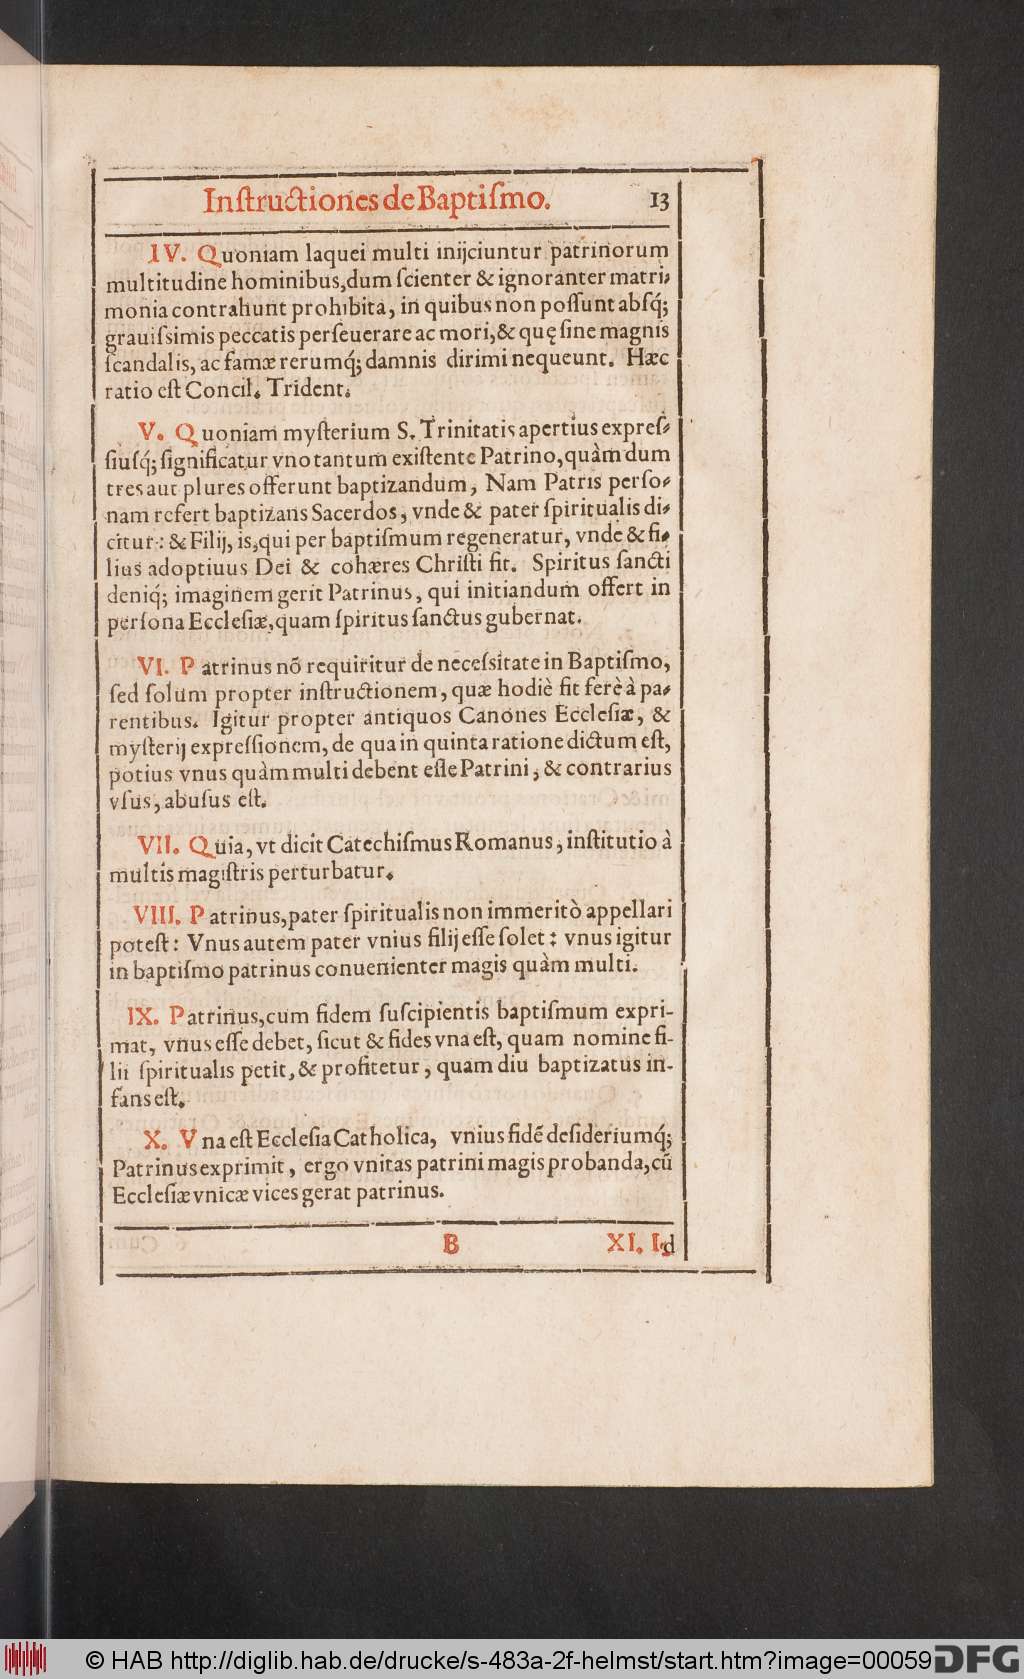 Inſtructiones de Baptiſmo. 13
IV. Quoniam laquei multi inijciuntur patrinorum
multitudine hominibus, dum ſcienter & ignoranter matri-
monia contrahunt prohibita, in quibus non poſſunt abſq́;
grauiſsimis peccatis perſeuerare ac mori, & quę ſine magnis
ſcandalis, ac famæ rerumq́; damnis dirimi nequeunt. Hæc
ratio eſt Concil. Trident.
V. Quoniam myſterium S. Trinitatis apertius expreſ-
ſiuſq́; ſignificatur vno tantum exiſtente Patrino, quàm dum
tres aut plures offerunt baptizandum, Nam Patris perſo-
nam refert baptizans Sacerdos, vnde & pater ſpiritualis di-
citur: & Filij, is, qui per baptiſmum regeneratur, vnde & fi-
lius adoptiuus Dei & cohæres Chriſti fit. Spiritus ſancti
deniq́; imaginem gerit Patrinus, qui initiandum offert in
perſona Eccleſiæ, quam ſpiritus ſanctus gubernat.
VI. Patrinus nõ requiritur de neceſsitate in Baptiſmo,
ſed ſolum propter inſtructionem, quæ hodiè fit ferè à pa-
rentibus. Igitur propter antiquos Canones Eccleſiæ, &
myſterij expreſſionem, de qua in quinta ratione dictum eſt,
potius vnus quàm multi debent eſſe Patrini, & contrarius
vſus, abuſus eſt.
VII. Quia, vt dicit Catechiſmus Romanus, inſtitutio à
multis magiſtris perturbatur.
VIII. Patrinus, pater ſpiritualis non immeritò appellari
poteſt: Vnus autem pater vnius filij eſſe ſolet: vnus igitur
in baptiſmo patrinus conuenienter magis quàm multi.
IX. Patrinus, cum fidem ſuſcipientis baptiſmum expri-
mat, vnus eſſe debet, ſicut & fides vna eſt, quam nomine fi-
lii ſpiritualis petit, & profitetur, quam diu baptizatus in-
fans eſt.
X. Vna eſt Eccleſia Catholica, vnius fidē deſideriumq́;
Patrinus exprimit, ergo vnitas patrini magis probanda, cū
Eccleſiæ vnicæ vices gerat patrinus.
B XI. Id
© HAB http://diglib.hab.de/drucke/s-483a-2f-helmst/start.htm?image=00059 DFG